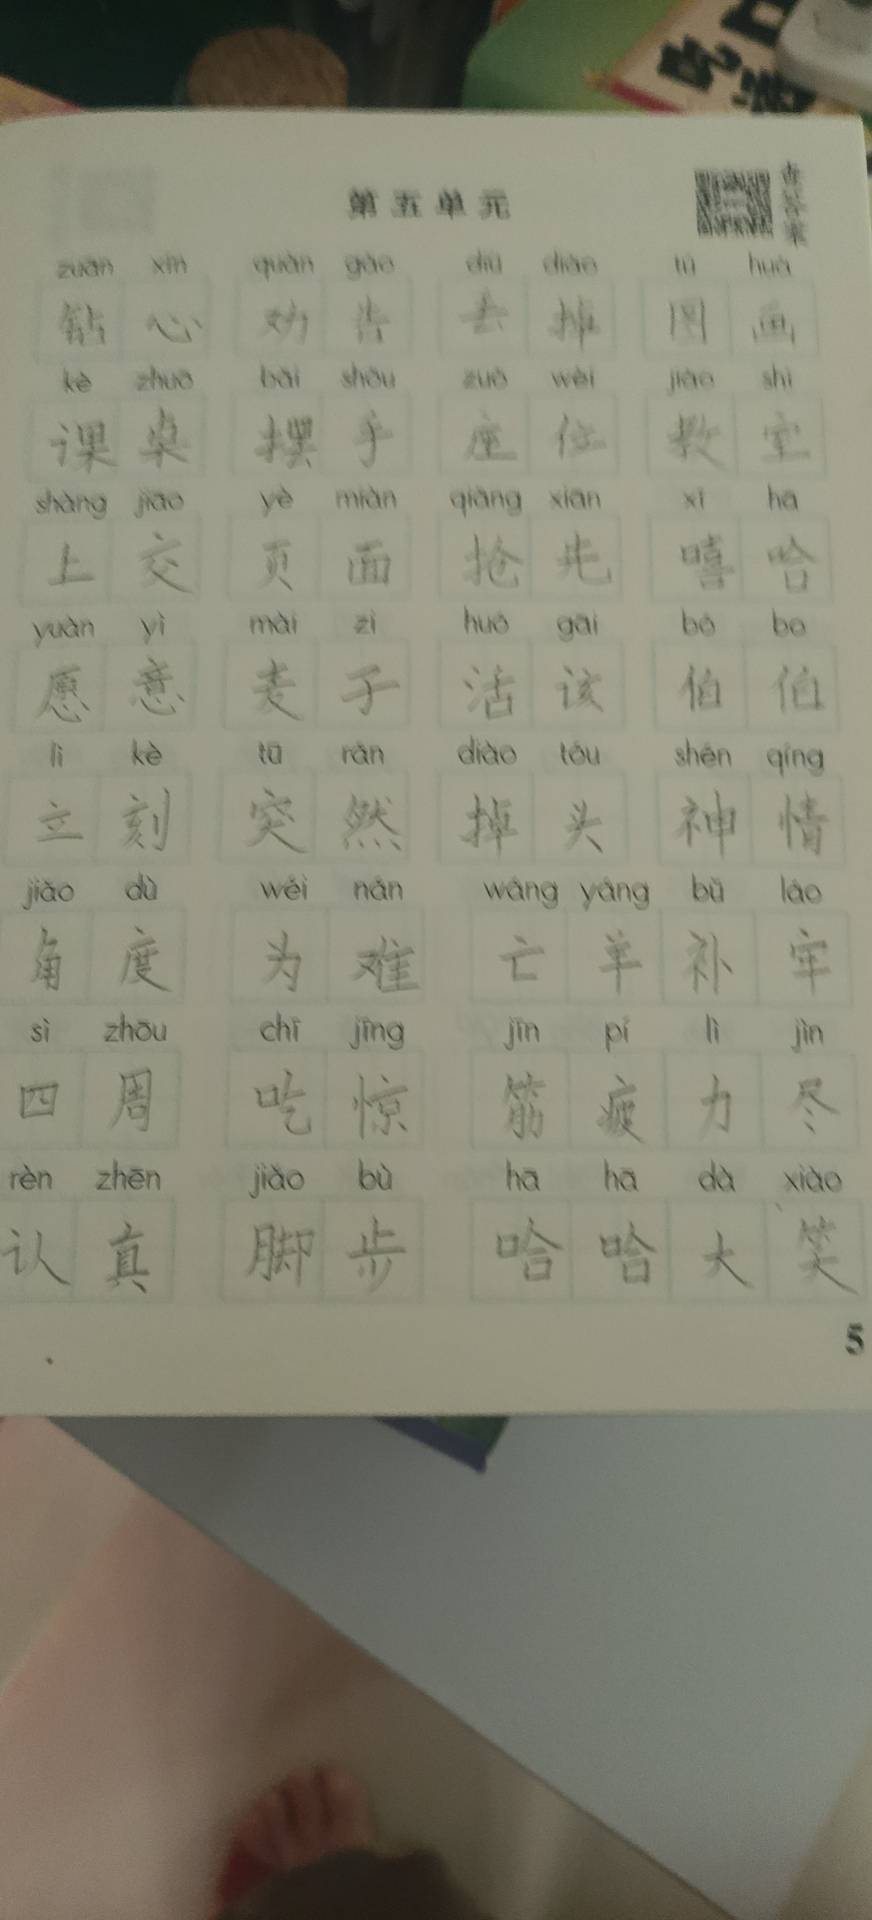 第五单元
查答案
zuān xīn quàn gào diū diào tú huà
钻心 劝告 丢掉 图画
kè zhuō bǎi shǒu zuò wèi jiào shì
课桌 摆手 座位 教室
shàng jiāo yè miàn qiǎng xiān xī hā
上交 页面 抢先 嘻哈
yuàn yì mài zi huó gāi bó bo
愿意 麦子 活该 伯伯
lì kè tū rán diào tóu shén qíng
立刻 突然 掉头 神情
jiǎo dù wéi nán wáng yáng bǔ láo
角度 为难 亡羊补牢
sì zhōu chī jīng jīn pí lì jìn
四周 吃惊 筋疲力尽
rèn zhēn jiǎo bù hā hā dà xiào
认真 脚步 哈哈大笑
5